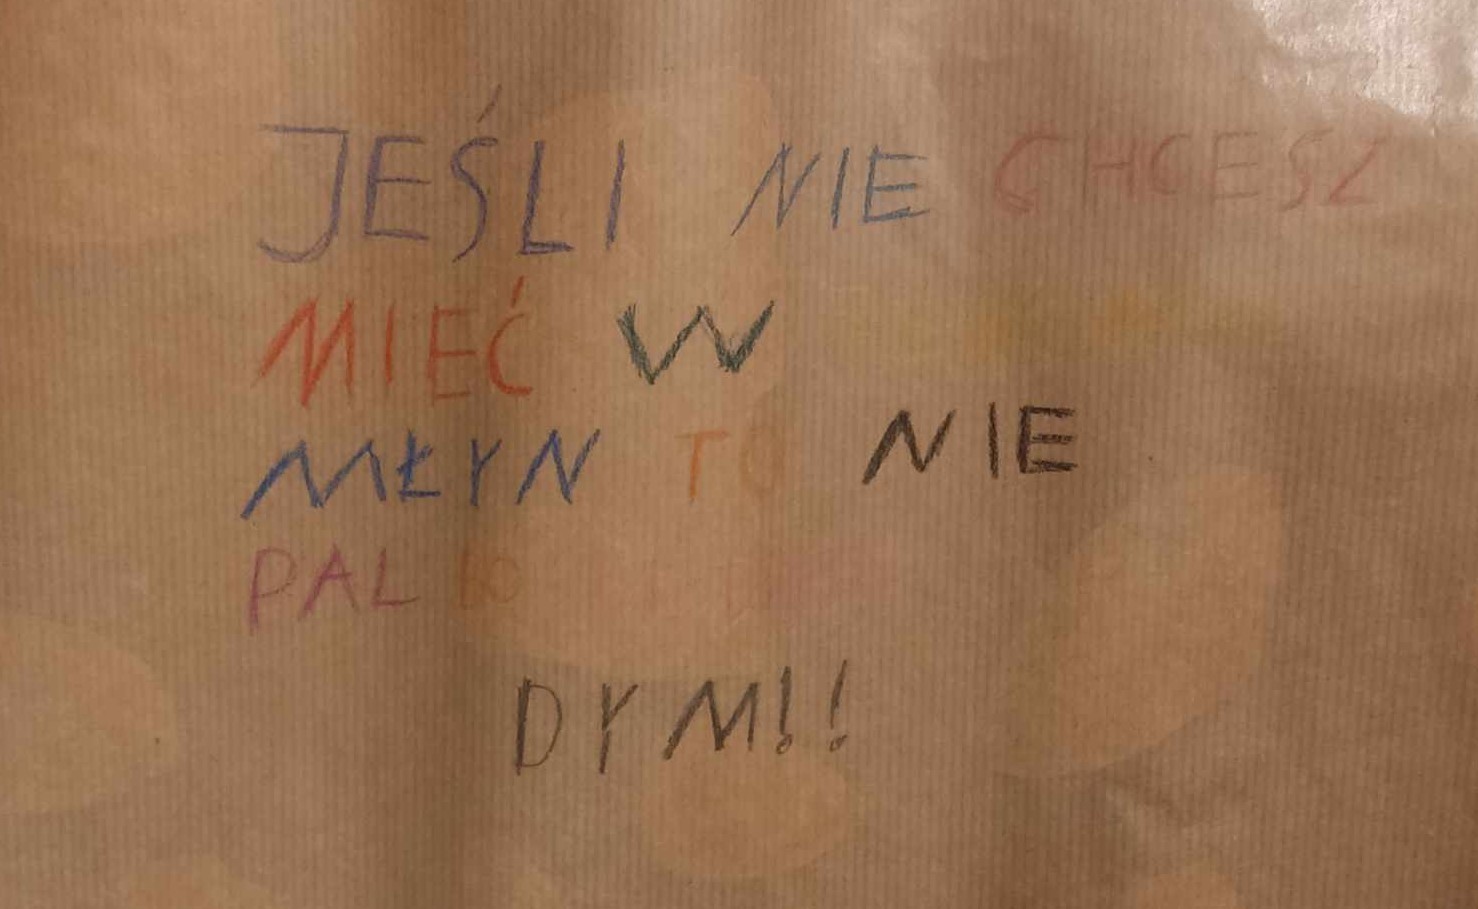 JEŚLI NIE CHCESZ
MIEĆ W
MŁYN TO NIE
PAL BO
DYM!!